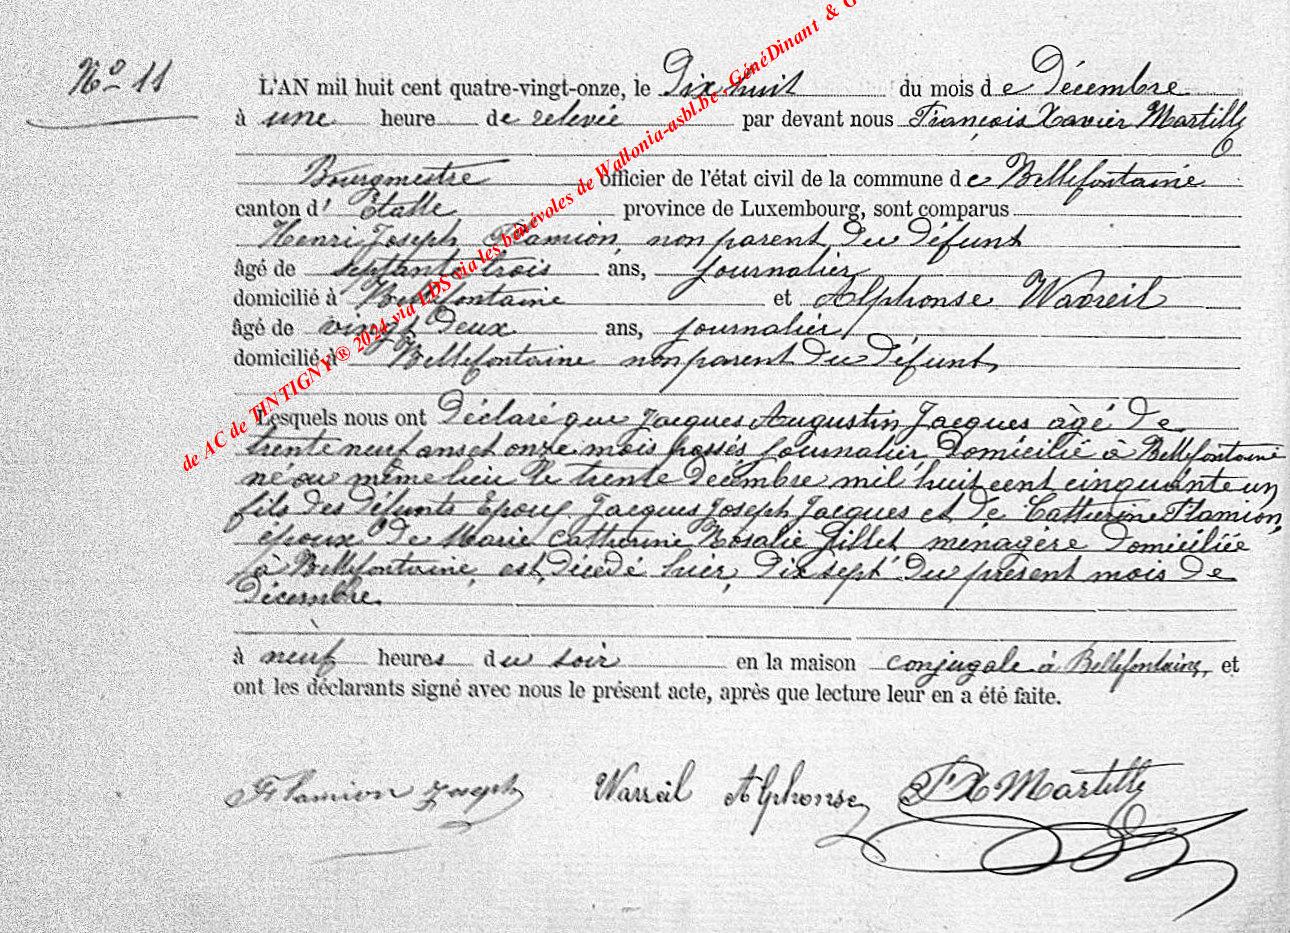 No 11
L'AN mil huit cent quatre-vingt-onze, le Dix huit du mois de Décembre
à une heure de relevée par devant nous François Xavier Martilly
Bourgmestre officier de l'état civil de la commune de Bellefontaine
canton d' Etalle province de Luxembourg, sont comparus
Henri Joseph Flamion, non parent du défunt
âgé de septante trois ans, journalier
domicilié à Bellefontaine et Alphonse Wavreil
âgé de vingt deux ans, journalier
domicilié à Bellefontaine non parent du défunt,
Lesquels nous ont Déclaré que Jacques Augustin Jacques âgé de
trente neuf ans et onze mois passés journalier domicilié à Bellefontaine
né au même lieu le trente décembre mil huit cent cinquante un
fils des défunts Epoux Jacques Joseph Jacques et de Catherine Flamion,
époux de Marie Catherine Rosalie Gillet ménagère domiciliée
à Bellefontaine, est décédé hier, dix sept du présent mois de
Décembre.
à neuf heures du soir en la maison conjugale à Bellefontaine, et
ont les déclarants signé avec nous le présent acte, après que lecture leur en a été faite.
Flamion Joseph Wavreil Alphonse FX Martilly
de AC de TINTIGNY® 2024 via LDS via les bénévoles de Wallonia-asbl.be , GénéDinant & G